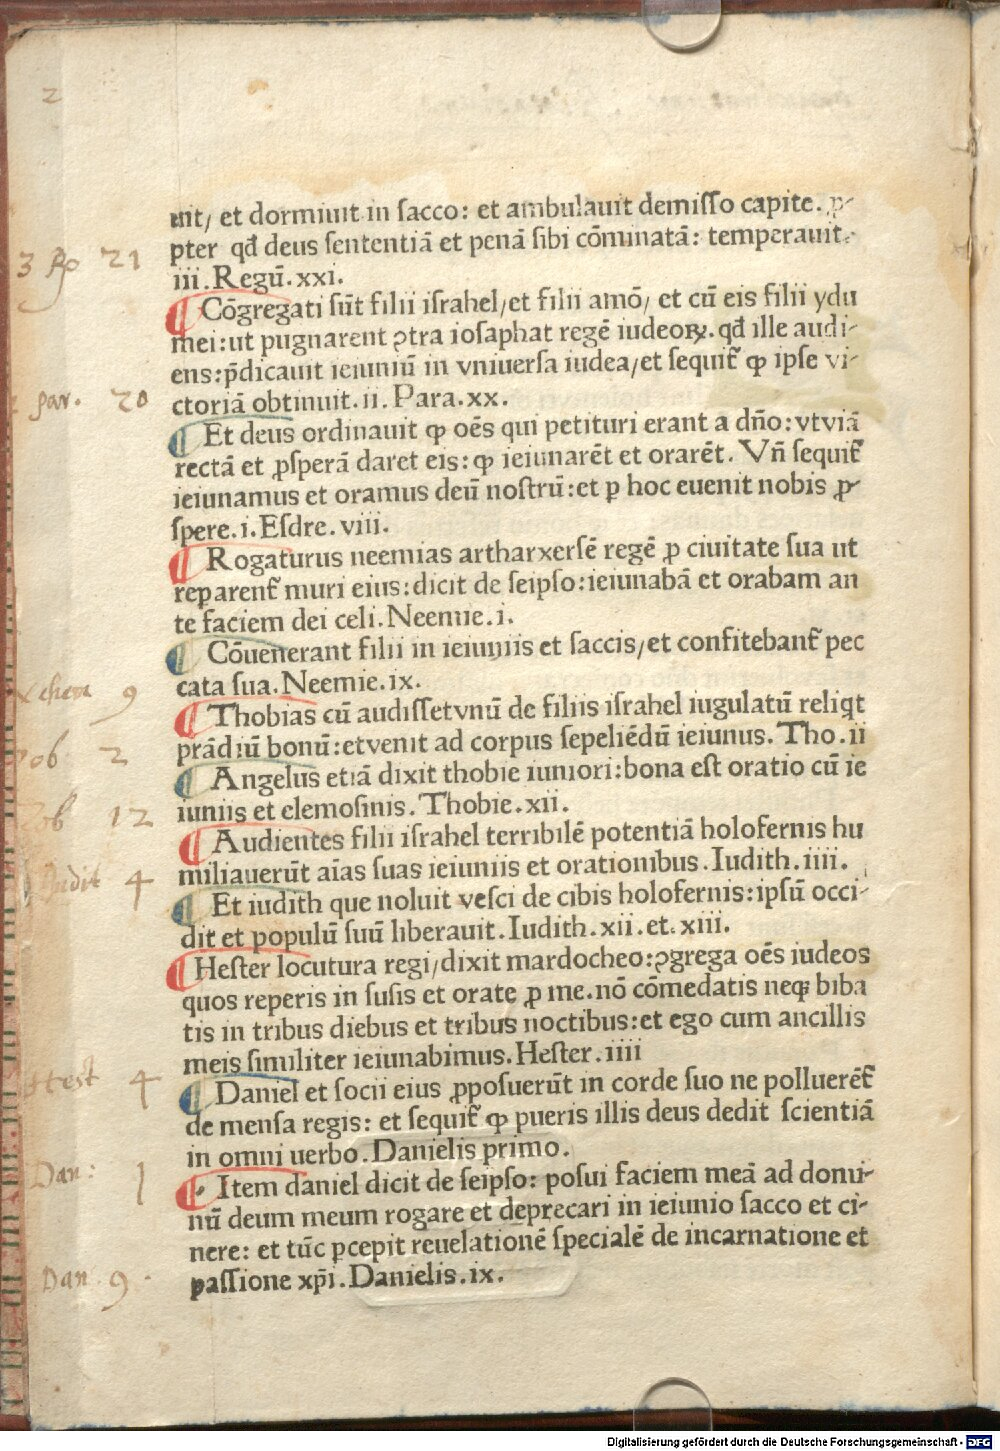 2
uit/ et dormiuit in sacco: et ambulauit demisso capite. ꝓ-
pter qđ deus sententiā et penā sibi cōminatā: temperauit.
3 Ro 21
iii. Regū. xxi.
¶ Cōgregati sūt filii israhel/et filii amō/ et cū eis filii ydu
mei: ut pugnarent ↄtra iosaphat regē iudeoꝝ. qđ ille audi-
ens: p̄dicauit ieiuniū in vniuersa iudea/et sequit᷑ ꝙ ipse vi-
par. 20
ctoriā obtinuit. ii. Para. xx.
¶ Et deus ordinauit ꝙ oēs qui petituri erant a dn̄o: vt viā
rectā et ꝓsperā daret eis: ꝙ ieiunarēt et orarēt. Vn̄ sequit᷑
ieiunamus et oramus deū nostrū: et p hoc euenit nobis ꝓ-
spere. i. Esdre. viii.
¶ Rogaturus neemias artharxersē regē ꝓ ciuitate sua ut
reparent᷑ muri eius: dicit de seipso: ieiunabā et orabam an
te faciem dei celi. Neemie. i.
¶ Cōuenerant filii in ieiuniis et saccis/et confitebant᷑ pec
cata sua. Neemie. ix.
Nehem 9
¶ Thobias cū audisset vnū de filiis israhel iugulatū reliq̇t
prādiū bonū: et venit ad corpus sepeliēdū ieiunus. Tho. ii
Tob 2
¶ Angelus etiā dixit thobie iuniori: bona est oratio cū ie
iuniis et elemosinis. Thobie. xii.
Tob 12
¶ Audientes filii israhel terribilē potentiā holofernis hu
miliauerūt aīas suas ieiuniis et orationibus. Iudith. iiii.
Judit 4
¶ Et iudith que noluit vesci de cibis holofernis: ipsū occi-
dit et populū suū liberauit. Iudith. xii. et. xiii.
¶ Hester locutura regi/dixit mardocheo: ↄgrega oēs iudeos
quos reperis in susis et orate ꝓ me. nō cōmedatis neqꝫ biba
tis in tribus diebus et tribus noctibus: et ego cum ancillis
meis similiter ieiunabimus. Hester. iiii
Hest 4
¶ Daniel et socii eius ꝓposuerūt in corde suo ne polluerēt᷑
de mensa regis: et sequit᷑ ꝙ pueris illis deus dedit scientiā
in omni uerbo. Danielis primo.
Dan: 1
¶ Item daniel dicit de seipso: posui faciem meā ad domi-
nū deum meum rogare et deprecari in ieiunio sacco et ci-
nere: et tūc ꝑcepit reuelationē specialē de incarnatione et
passione xp̄i. Danielis. ix.
Dan. 9.
Digitalisierung gefördert durch die Deutsche Forschungsgemeinschaft - DFG